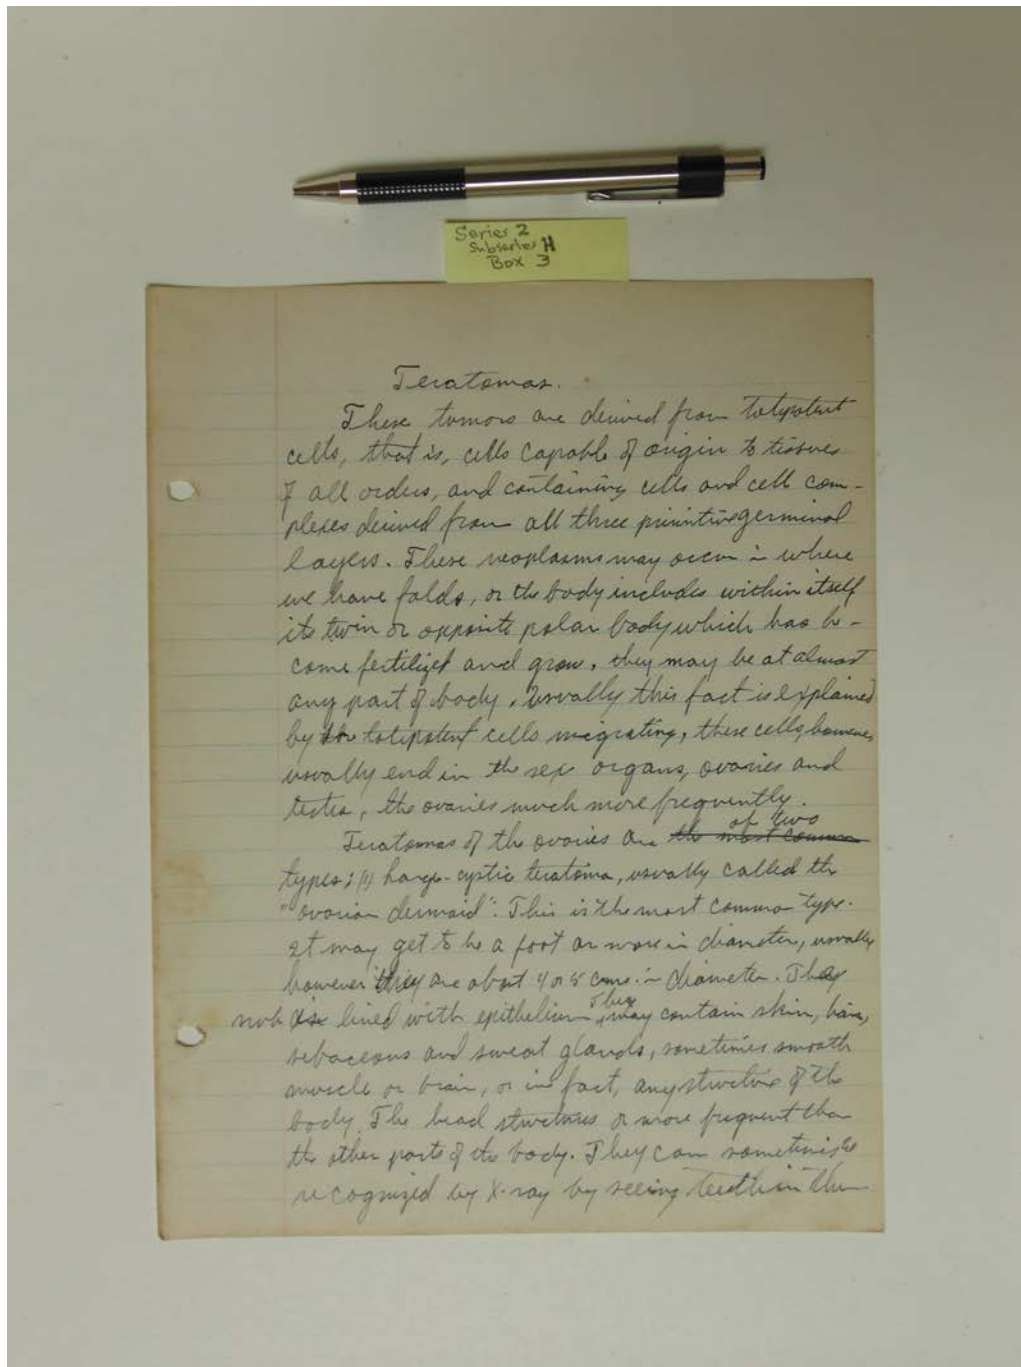 Series 2
Subseries H
Box 3
Teratomas.
These tumors are derived from totipotent
cells, that is, cells capable of origin to tissues
of all orders, and containing cells and cell com-
plexes derived from all three primitive germinal
layers. These neoplasms may occur in where
we have folds, or the body includes within itself
its twin or opposite polar body which has be-
come fertilized and grow, they may be at almost
any part of body. Usually this fact is explained
by totipotent cells migrating, these cells, however
usually end in the sex organs, ovaries and
testes, the ovaries much more frequently.
Teratomas of the ovaries are the most common of two
types; (1) large-cystic teratoma, usually called the
"ovarian dermoid". This is the most common type.
It may get to be a foot or more in diameter, usually
however they are about 4 or 5 cms. in diameter. They
lined with epithelium. They may contain skin, hair,
sebaceous and sweat glands, sometimes smooth
muscle or brain, or in fact, any structure of the
body. The head structures or more frequent than
the other parts of the body. They can sometimes be
recognized by X-ray by seeing teeth in them